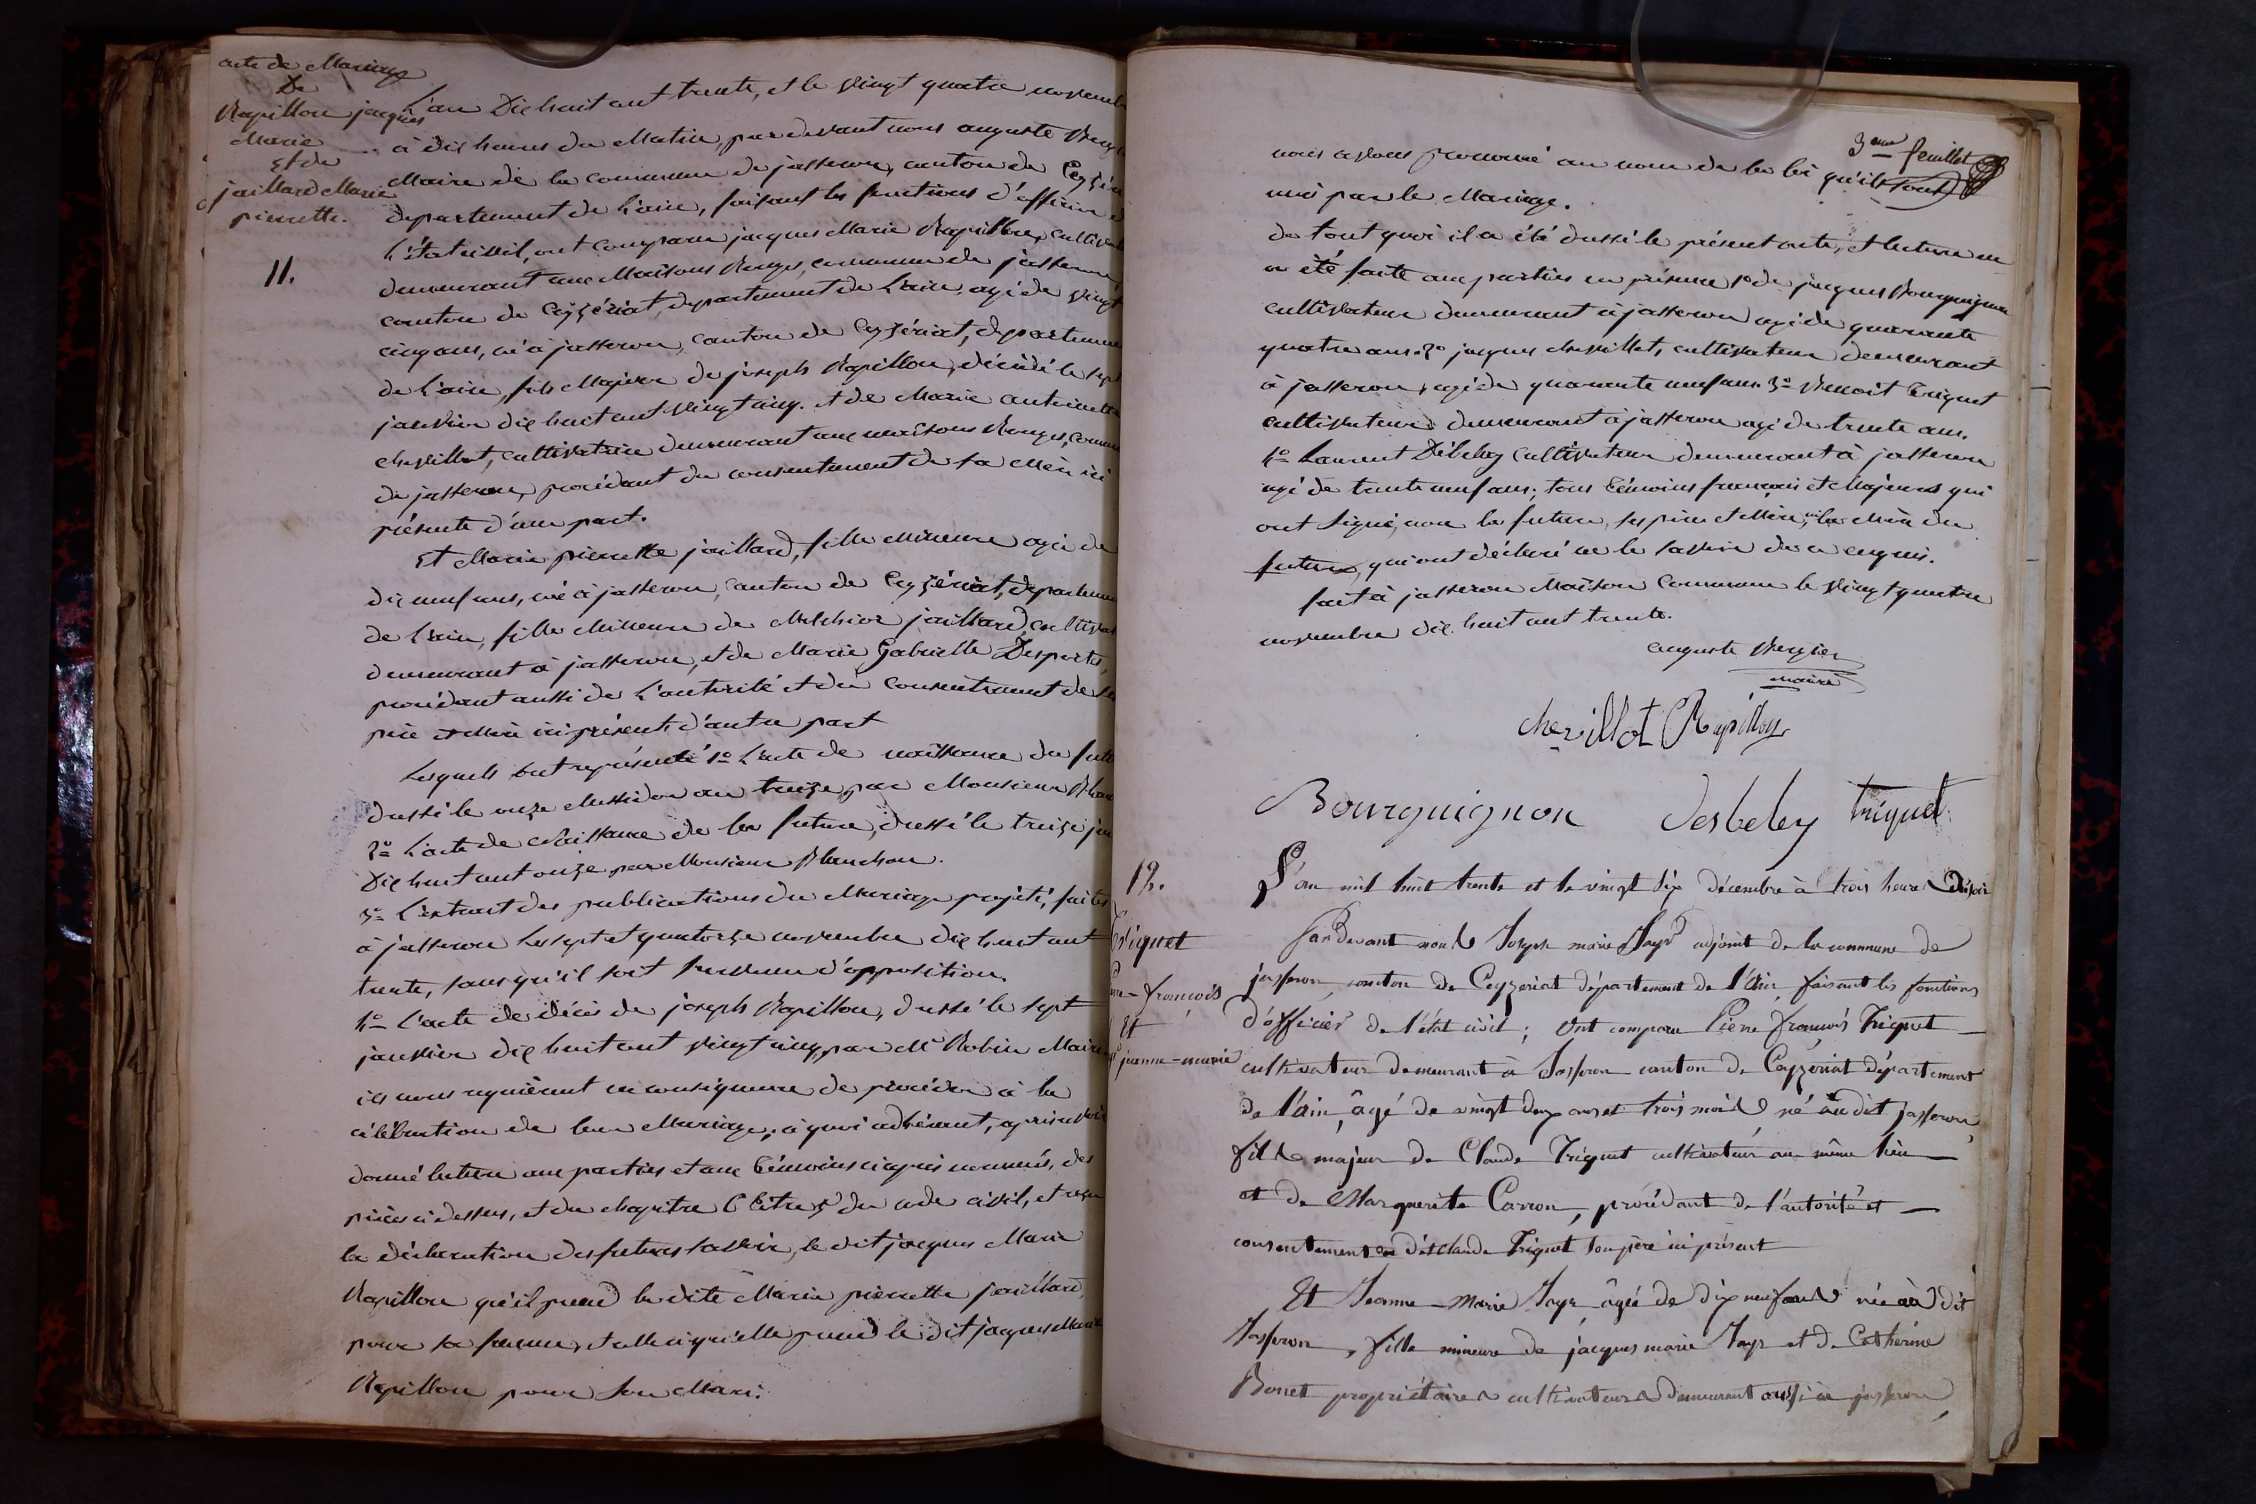 acte de Mariage
De
Rapillon jacques
Marie
Et de
jaillard Marie
pierrette.
11.
L'an Dix huit cent trente, et le vingt quatre novembre
à dix heures du Matin, par devant nous auguste
Maire de la commune de jasseron, canton de Ceyzériat
departement de l'ain, faisant les fonctions d'officier de
L'état civil, ont comparu jacques Marie Rapillon, cultivateur
demeurant aux Maisons Rouges, commune de jasseron
canton de Ceyzériat, departement de l'ain, agé de vingt
cinq ans, né à jasseron, canton de Ceyzériat, departement
de l'ain, fils Majeur de joseph Rapillon, décédé le sept
janvier dix huit cent vingt cinq. et de Marie antoinette
chevillot, cultivatrice demeurant aux maisons Rouges, commune
de jasseron, procédant du consentement de sa Mère ici
présente d'une part.
Et Marie pierrette jaillard, fille Mineure agée de
dix neuf ans, née à jasseron, canton de Ceyzériat, departement
de l'ain, fille Mineure de Melchior jaillard cultivateur
demeurant à jasseron, et de Marie Gabrielle Desportes,
procédant aussi de l'autorité et du consentement de ses
père et Mère ici présents d'autre part
Lesquels ont représenté 1o L'acte de naissance du futur
dressé le onze Messidor an treize, par Monsieur
2o L'acte de Naissance de la future, dressé le treize
Dix huit cent onze par Monsieur Planchon.
3o L'extrait des publications du Mariage projeté, faites
à jasseron les sept et quatorze novembre dix huit cent
trente, sans qu'il soit survenu d'opposition.
4o L'acte de décès de joseph Rapillon, dressé le sept
janvier dix huit cent vingt cinq, par Mr Robin Maire
ils nous requièrent en conséquence de procéder à la
célébration de leur Mariage; à quoi adhérant, après avoir
donné lecture aux parties et aux témoins ci après nommés, des
pièces ci dessus, et du chapitre 6 titre 5 du code civil, et reçu
la déclaration des futurs savoir, le dit jacques Marie
Rapillon qu'il prend la dite Marie pierrette jaillard,
pour sa femme, et celle ci qu'elle prend le dit jacques Marie
Rapillon pour son Mari.
3eme feuillet
nous avons prononcé au nom de la loi qu'ils sont
unis par le Mariage.
de tout quoi il a été dressé le présent acte, et lecture en
a été faite aux parties en présence 1o de jacques Bourguignon
cultivateur demeurant à jasseron agé de quarante
quatre ans. 2o jacques chevillot, cultivateur demeurant
à jasseron, agé de quarante neuf ans. 3o Benoit Triquet
cultivateur demeurant à jasseron agé de trente ans.
4o Laurent Débeley cultivateur demeurant à jasseron
agé de trente neuf ans; tous témoins français et Majeurs qui
ont signé, non la future, ses père et Mère, ni la Mère du
futur, qui ont déclaré ne le savoir de ce enquis.
fait à jasseron Maison commune le vingt quatre
novembre dix huit cent trente.
auguste
Maire
chevillot Rapillon
Bourguignon Desbeley triquet
12.
Triquet
françois
Et
jeanne-marie
L'an mil huit trente et le vingt six décembre à trois heures du soir
Pardevant nous Joseph marie Jayr adjoint de la commune de
jasseron, canton de Ceyzeriat département de l'Ain, faisant les fonctions
d'officier de l'état civil; Ont comparu Pierre françois Triquet
cultivateur demeurant à Jasseron canton de Ceyzeriat département
de l'Ain, âgé de vingt deux ans et trois mois, né au dit jasseron,
fils majeur de Claude Triquet cultivateur au même lieu
et de Marguerite Carron, procédant de l'autorité et
consentement du dit Claude Triquet son père ici présent
Et Jeanne-Marie Jayr, âgée de dix neuf ans née au dit
Jasseron, fille mineure de jacques marie Jayr et de Catherine
Bonet propriétaires cultivateurs demeurant aussi à jasseron,